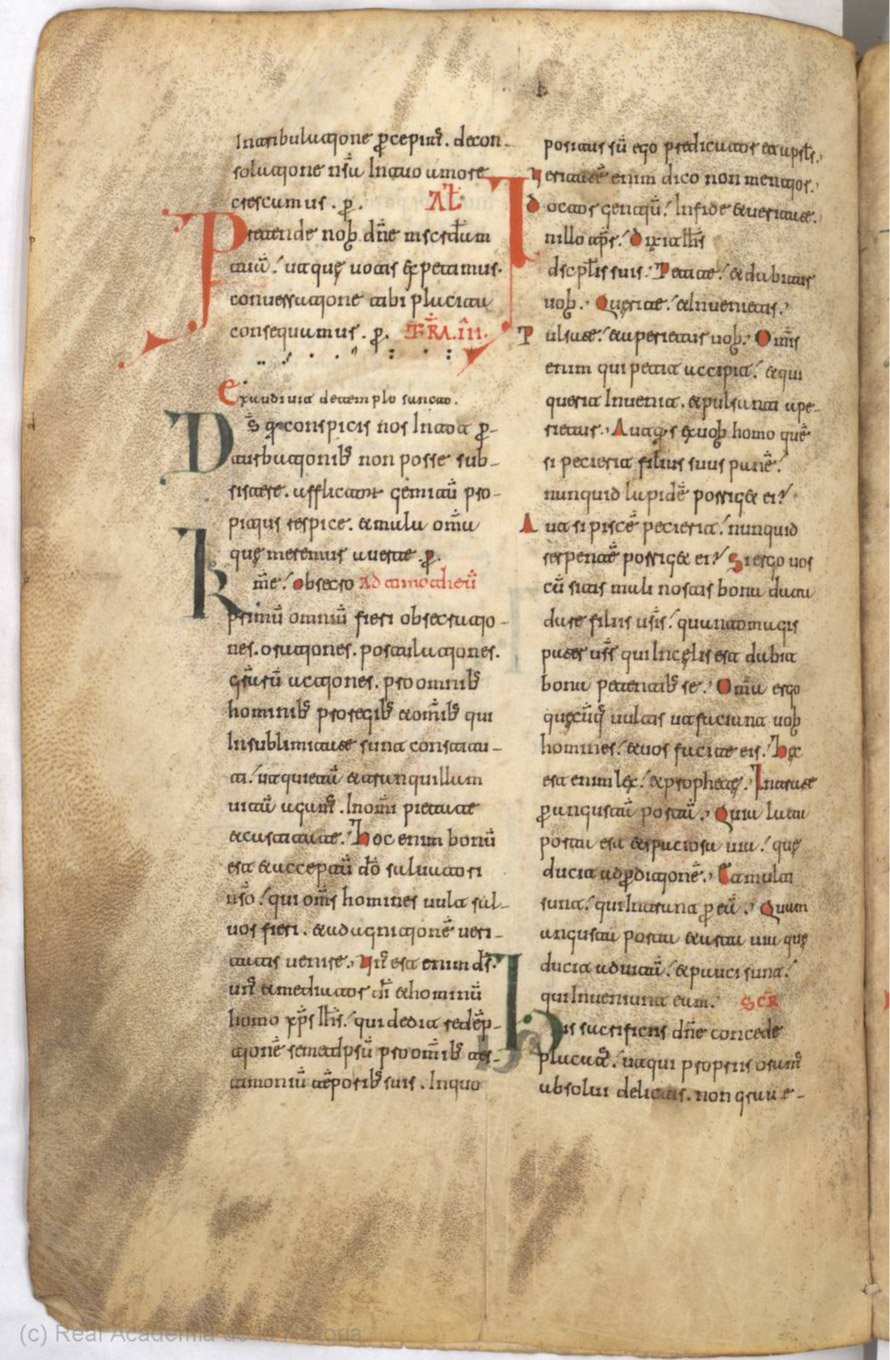 Intribulatione p̄cepim̄. & con-
solatione nr̄a Inquo amore
crescamus. p̄. Al̄
Pretende nob̄ dñe misc̄dam
tuā. ut que uotis expetimus.
conuersatione tibi placita
consequamus. p̄. FRĀ.III.
Exaudiuit de templo sancto.
Ds̄ q̄ conspicis nos Intot p̄-
turbationib̄ non posse sub-
sistere. afflictor̄ gemitū pro-
pitius respice. & mala om̄a
quę meremur auerte. p̄.
K m̄e. Obsecro Ad timotheū
primū omniū fieri obsecratio-
nes. orationes. postulationes.
grārū actiones. pro omnib̄
hominib̄ pro regib̄ & om̄ib̄ qui
Insublimitate sunt constitu-
ti. ut quietā & tranquillam
uitā agam̄. Inom̄i pietate
& castitate. hoc enim bonū
est & acceptū dō saluatori
nr̄o. qui om̄s homines uult sal-
uos fieri. & ad agnitionē ueri-
tatis uenire. un̄ est enim ds̄.
un̄ & mediator dī & hominū
homo xp̄s ih̄s. qui dedit redēp-
tionē semedpsū pro om̄ib̄ tes-
timoniū tēporib̄ suis. Inquo
positus sū ego predicator & apsl̄s.
ueritatē enim dico non mentior.
doctor gentiū. Infide & ueritate.
Inillo tp̄r. Dixit ih̄s
discpl̄is suis. Petite. & dabitur
uob̄. Querite. & Inuenietis.
Pulsate. & aperietur uob̄. Om̄is
enim qui petit accipit. & qui
querit Inuenit. & pulsanti ape-
rietur. Aut q̄s ex uob̄ homo quē
si petierit filius suus panē.
nunquid lapidē porrig& ei.
Aut si piscē petierit. nunquid
serpentē porrig& ei. Si ergo uos
cū sitis mali nostis bona data
dare filiis ur̄is. quantomagis
pater ur̄ qui Incęlis est dabit
bona petentib̄ se. Om̄a ergo
quęcūq̄ uultis ut faciant uob̄
homines. & uos facite eis. Hęc
est enim lex. & prophetę. Intrate
p̄ angustā portā. Quia lata
porta est & spatiosa uia. quę
ducit ad p̄ditionē. Et multi
sunt. qui Intrant p̄ eā. Quam
angusta porta & arta uia quę
ducit ad uitā. & pauci sunt.
qui Inueniunt eam. SCR̄
His sacrificiis dñe concede
placat̄. ut qui propriis oram̄
absolui delictis. non graue-
(c) Real Academia de la Historia